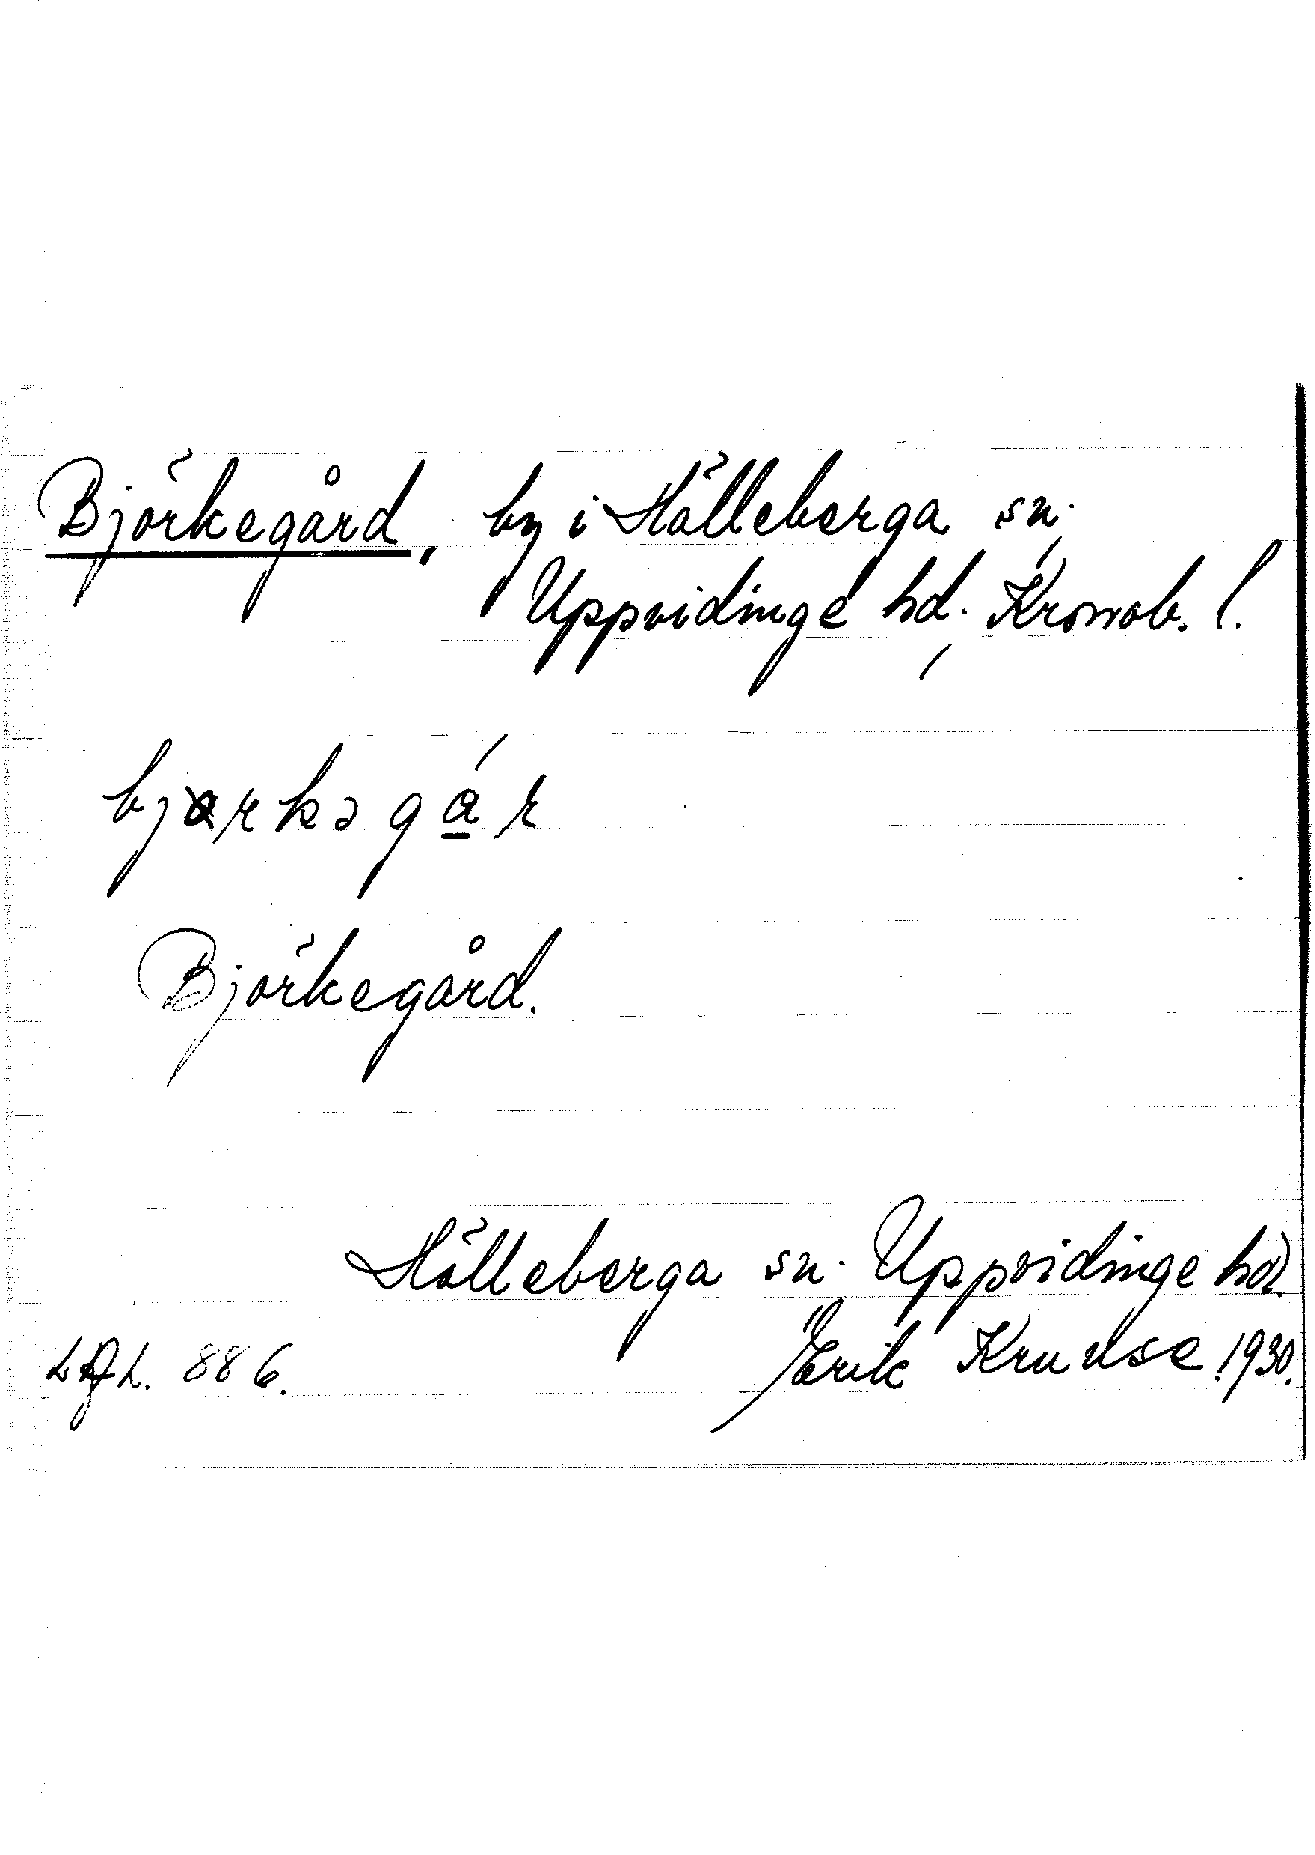 Björkegård, by i Hälleberga sn.
Uppvidinge hd, Kronob. l.
bjɵrkəgár
Björkegård.
Hälleberga sn. Uppvidinge hd.
886. Erik Kruuse 1930.